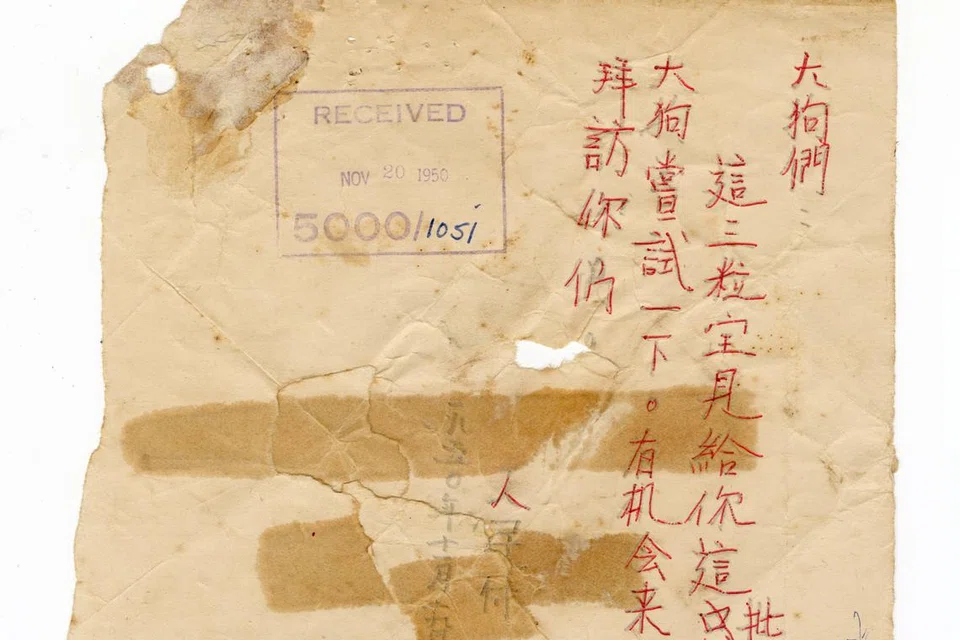 RECEIVED
NOV 20 1950
5000/1051
大狗們：
這三粒宝貝給你這批
大狗嘗試一下。有机会来
拜訪你们。
人民付
一九五〇年十月五